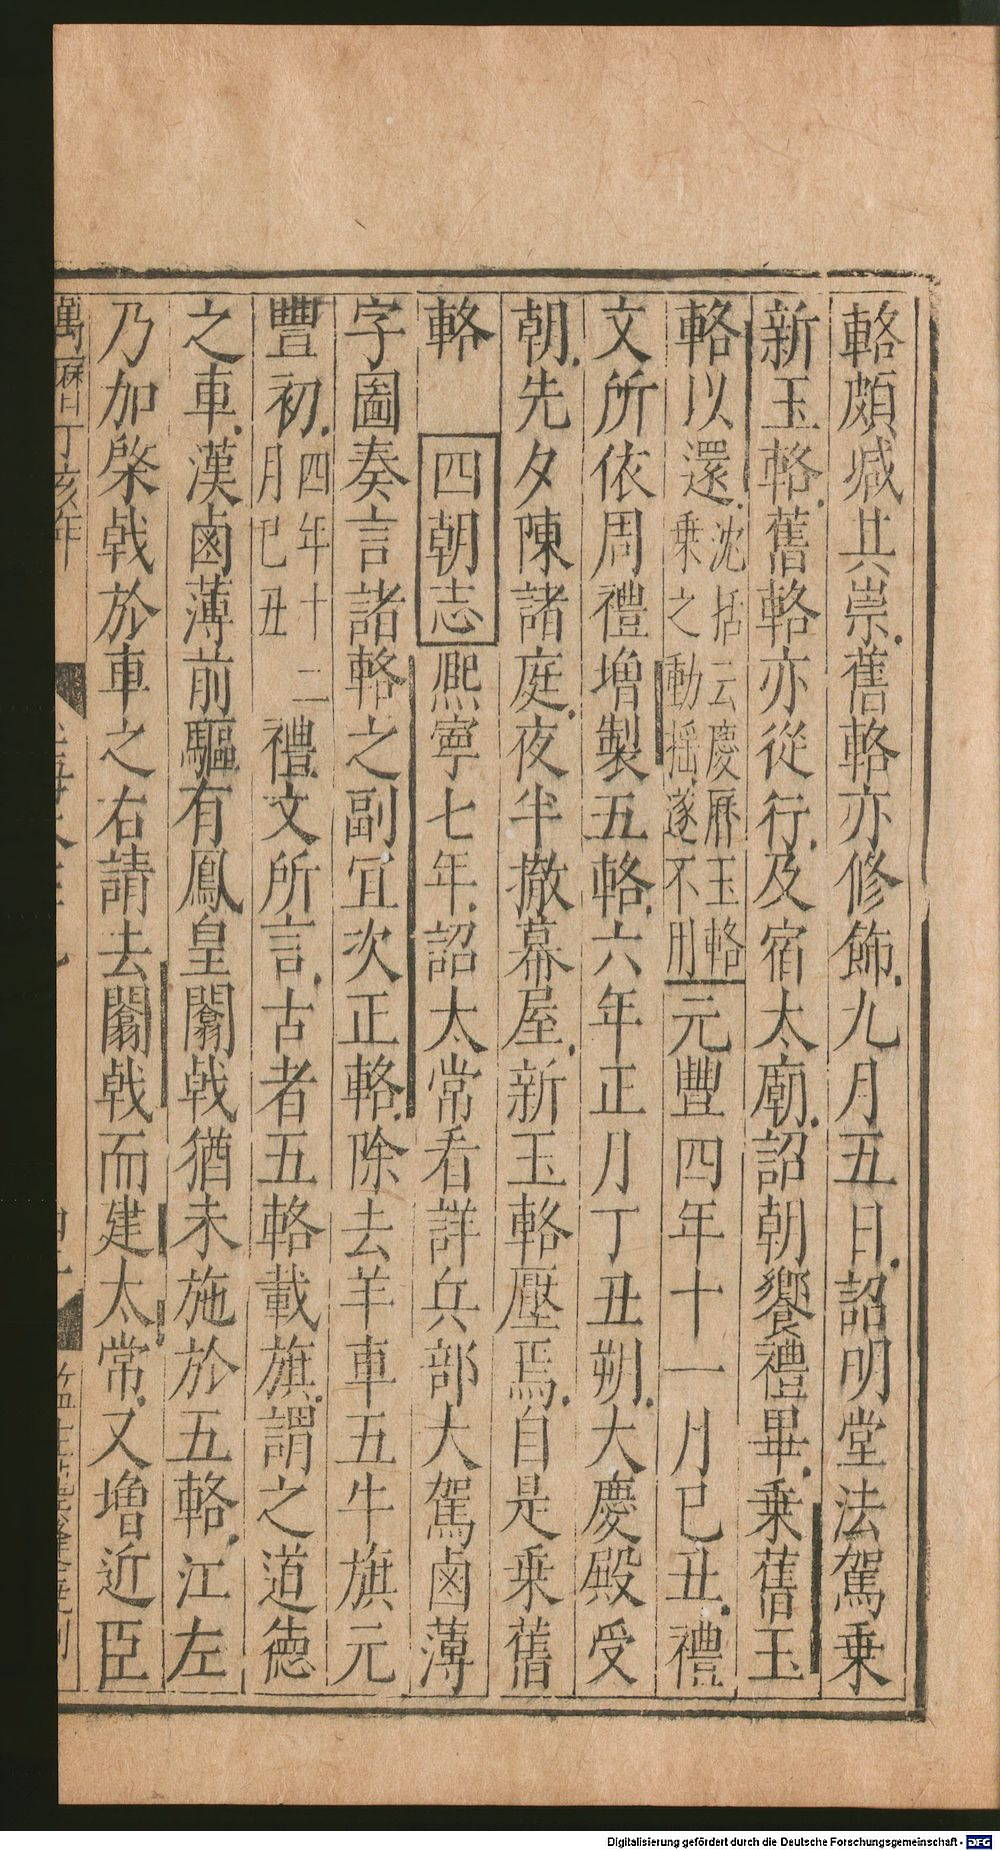 輅頗減其崇舊輅亦修飾九月五日詔明堂法駕乗
新玉輅舊輅亦從行及宿太廟詔朝饗禮畢乗舊玉
輅以還沈括云慶曆玉輅乗之動揺遂不用元豐四年十一月己丑禮
文所依周禮増製五輅六年正月丁丑朔大慶殿受
朝先夕陳諸庭夜半撤幕屋新玉輅壓焉自是乗舊
輅 四朝志熈寧七年詔太常看詳兵部大駕鹵薄
字圗奏言諸輅之副冝次正輅除去羊車五牛旗元
豐初四年十二月己丑禮文所言古者五輅載旗謂之道德
之車漢鹵薄前驅有鳳皇闟戟猶未施於五輅江左
乃加棨戟於車之右請去闟戟而建太常又増近臣
萬曆丁亥年
Digitalisierung gefördert durch die Deutsche Forschungsgemeinschaft - DFG